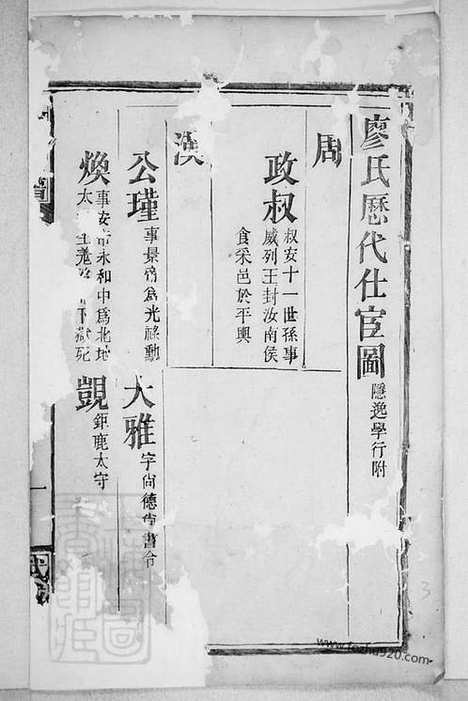 廖氏歷代仕宦圖 隱逸學行附
周
政叔 叔安十一世孫事
威列王封汝南侯
食采邑於平輿
漢
公瑾 事景帝為光祿勳
大雅 字尚德尚書令
煥 事安帝永和中為北地
太 獄死
覬 鉅鹿太守
一
www.fozhu920.com
3